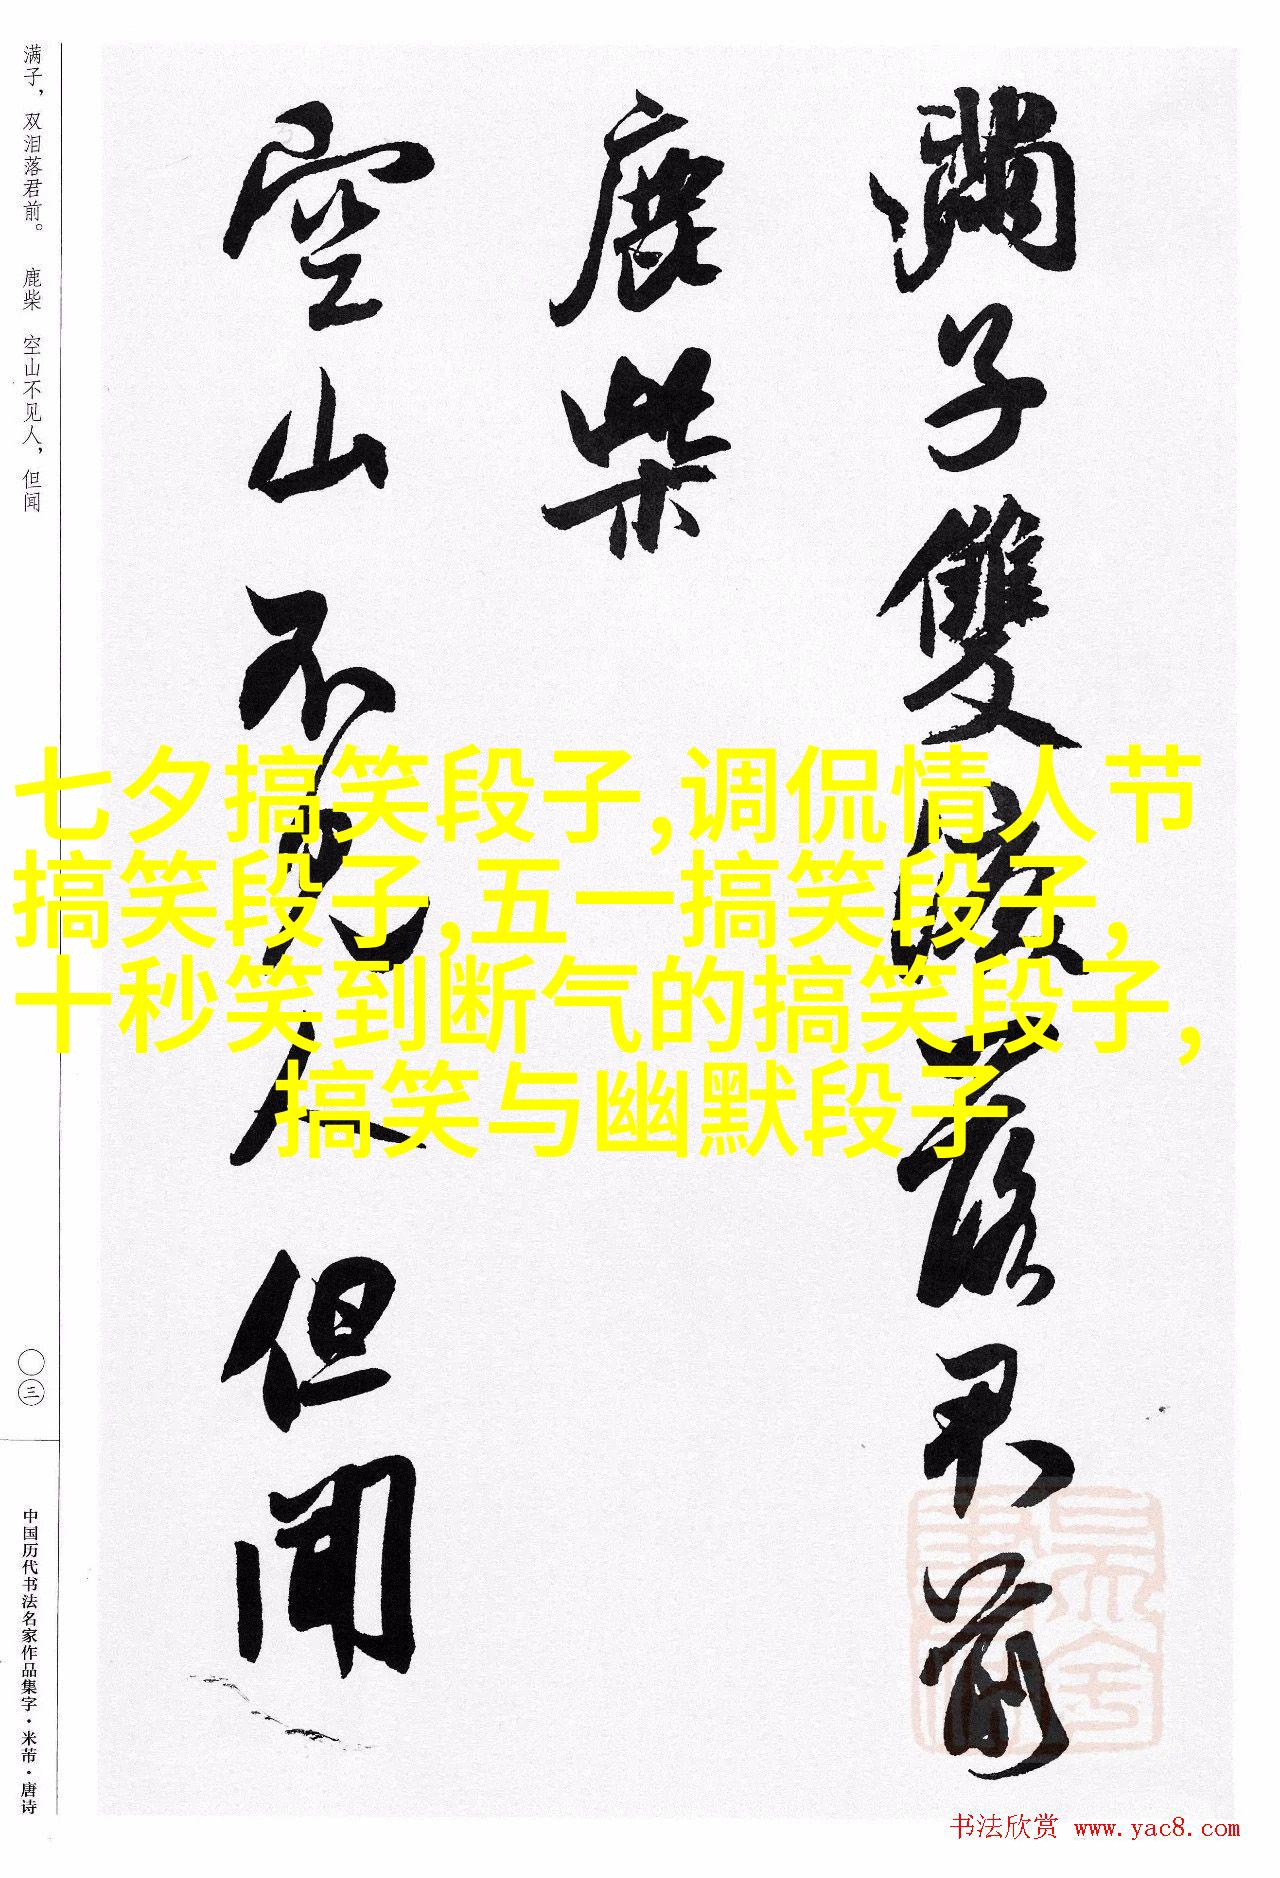 滿子雙淚落君前
鹿柴
空山不見人但聞
满子，双泪落君前。 鹿柴 空山不见人，但闻
〇三
中国历代书法名家作品集字·米芾·唐诗
七夕搞笑段子,调侃情人节
搞笑段子,五一搞笑段子,
十秒笑到断气的搞笑段子,
搞笑与幽默段子
书法欣赏 www.yac8.com